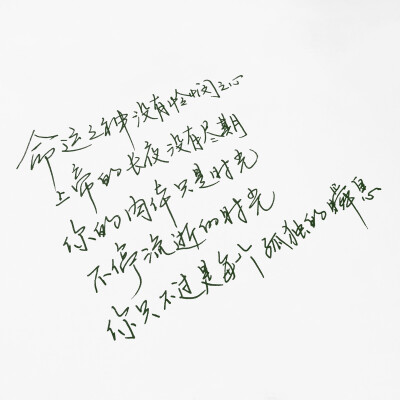 命运之神没有怜悯之心
上帝的长夜没有尽期
你的肉体只是时光
不停流逝的时光
你只不过是每个孤独的瞬息